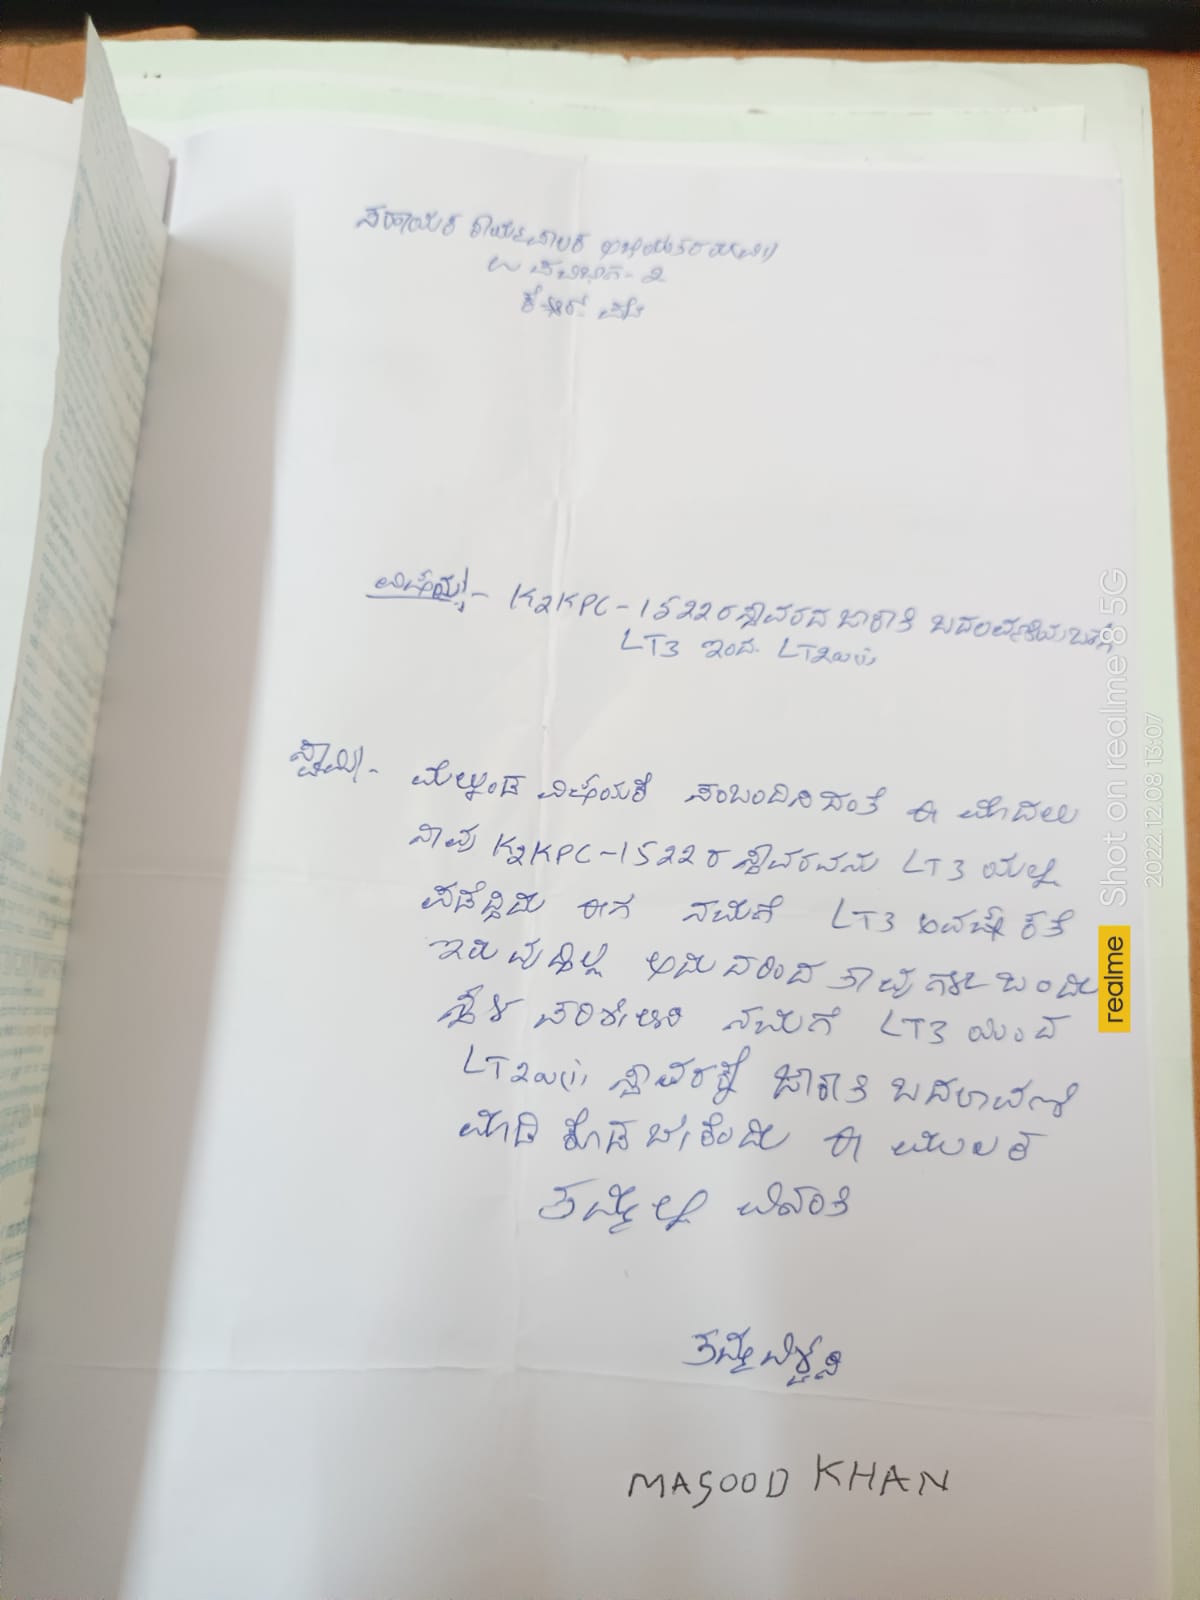 ಸಹಾಯಕ ಕಾರ್ಯಪಾಲಕ ಅಭಿಯಂತರರು(ವಿ)
ಉಪವಿಭಾಗ-೨
ಕೆ.ಆರ್. ಪೇಟೆ
ವಿಷಯ:- K2KPC-1522ರ ಸ್ಥಾವರದ ಜಾಕಾತಿ ಬದಲಾವಣೆಯ ಬಗ್ಗೆ
LT3 ಇಂದ LT2a(ii)
ಸ್ವಾಮಿ- ಮೇಲ್ಕಂಡ ವಿಷಯಕೆ ಸಂಬಂದಿಸಿದಂತೆ ಈ ಮೊದಲು
ನಾವು K2KPC-1522ರ ಸ್ಥಾವರವನು LT3 ಯಲ್ಲಿ
ಪಡೆದ್ದಿದು ಈಗ ನಮಗೆ LT3 ಅವಶ್ಯಕತೆ
ಇರುವುದ್ದಿಲ್ಲ ಅದುದರಿಂದ ತಾವುಗಳು ಬಂದು
ಸ್ಥಳ ಪರಿಶೀಲಿಸಿ ನಮಗೆ LT3 ಯಿಂದ
LT2a(ii) ಸ್ಥಾವರಕ್ಕೆ ಜಾಕಾತಿ ಬದಲಾವಣೆ
ಮಾಡಿ ಕೊಡಬೇಕೆಂದು ಈ ಮೂಲಕ
ತಮ್ಮಲ್ಲಿ ವಿನಂತಿ
ತಮ್ಮ ವಿಶ್ವಾಸಿ
MASOOD KHAN
realme
Shot on realme 8 5G
2022.12.08 13:07